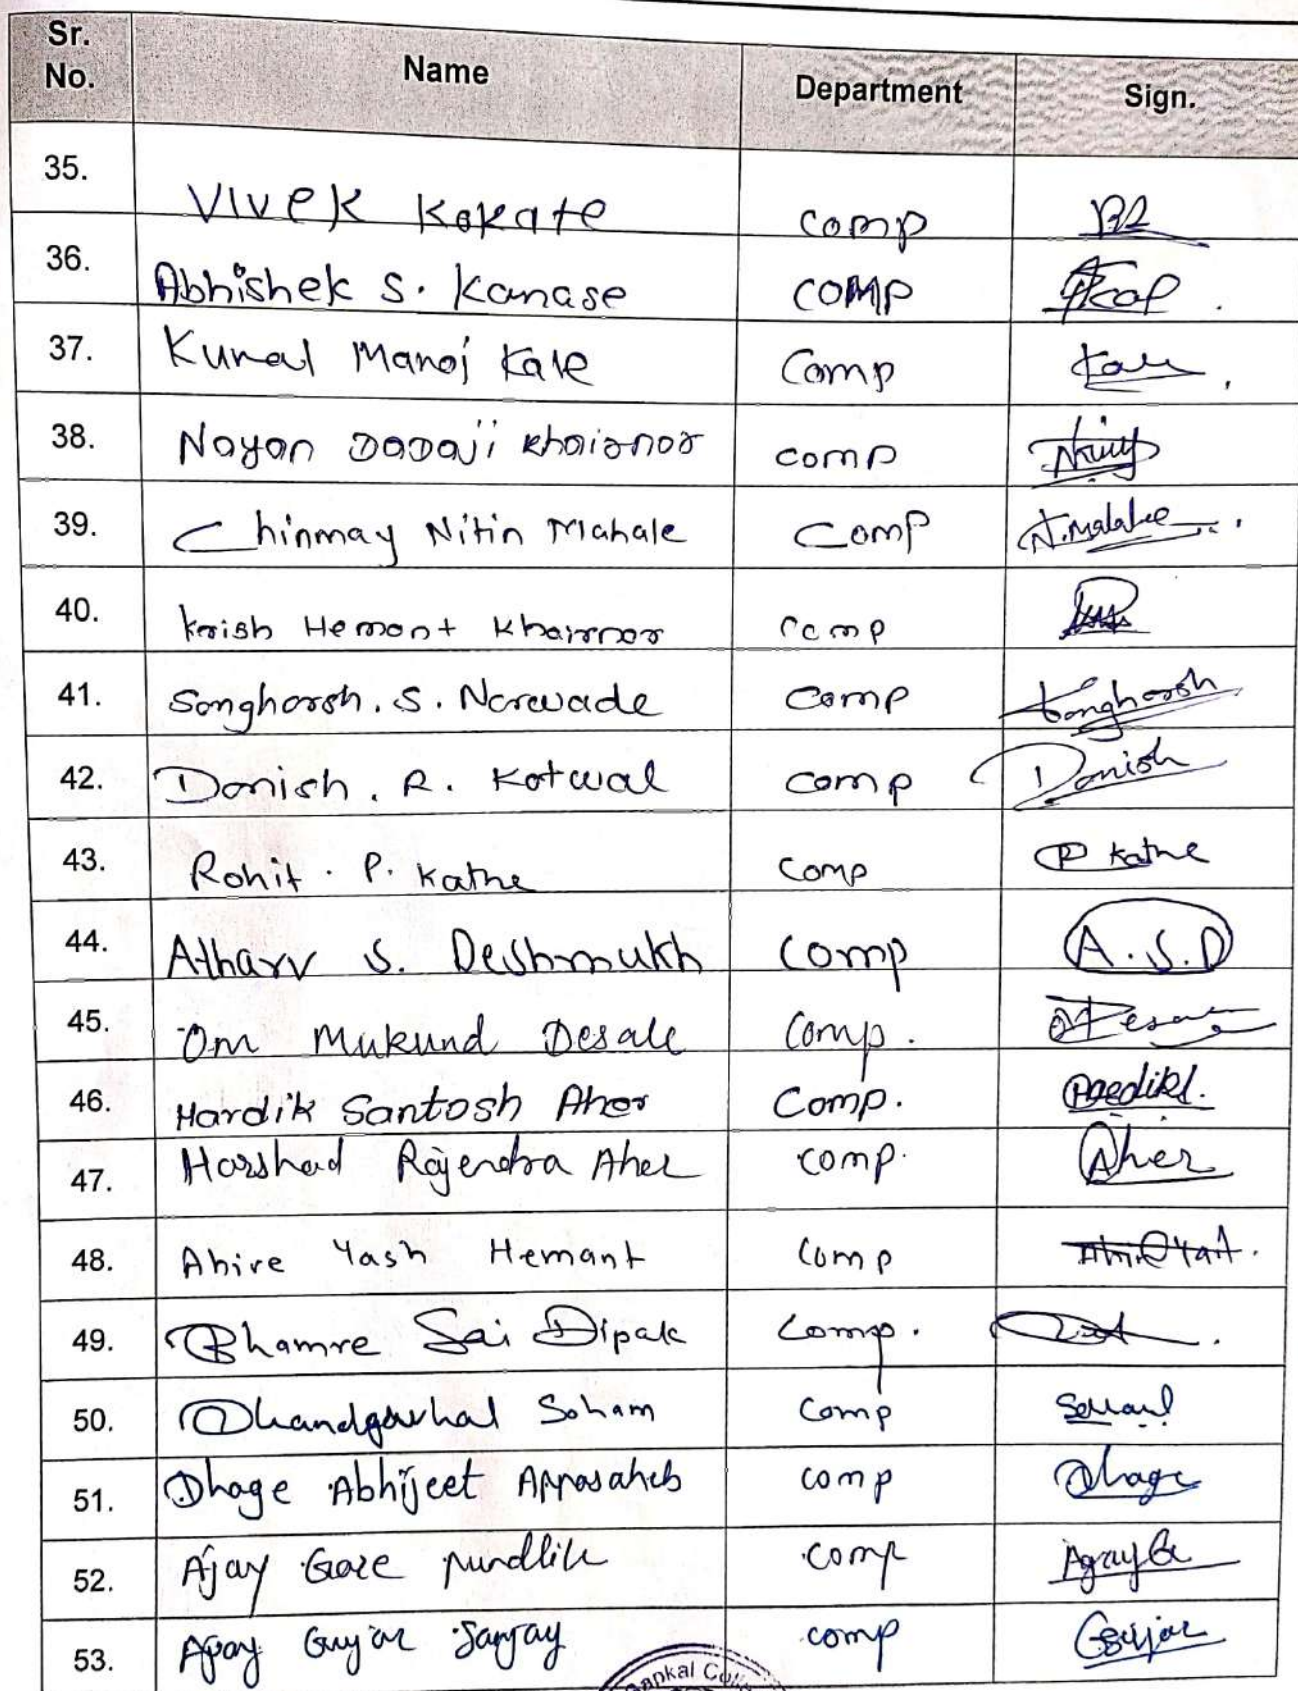 Sr. No. Name Department Sign.
35. Vivek Kokate comp
36. Abhishek S. Kanase COMP
37. Kunal Manoj Kale Comp Kale
38. Nayan Dadaji Khairnar comp
39. Chinmay Nitin Mahale Comp N.Mahale
40. Krish Hemant Khairnar comp
41. Sangharsh. S. Narwade comp Sangharsh
42. Danish. R. Kotwal comp Danish
43. Rohit. P. Kathe comp R Kathe
44. Atharv S. Deshmukh comp A.S.D
45. Om Mukund Desale Comp.
46. Hardik Santosh Aher Comp. Hardik.
47. Harshad Rajendra Aher comp. Aher
48. Ahire Yash Hemant Comp
49. Bhamre Sai Dipak Comp.
50. Dhandgavhal Soham comp
51. Dhage Abhijeet Appasaheb comp Dhage
52. Ajay Gore pundlik comp
53. Ajay Gujar Sanjay comp Gujar
apkal